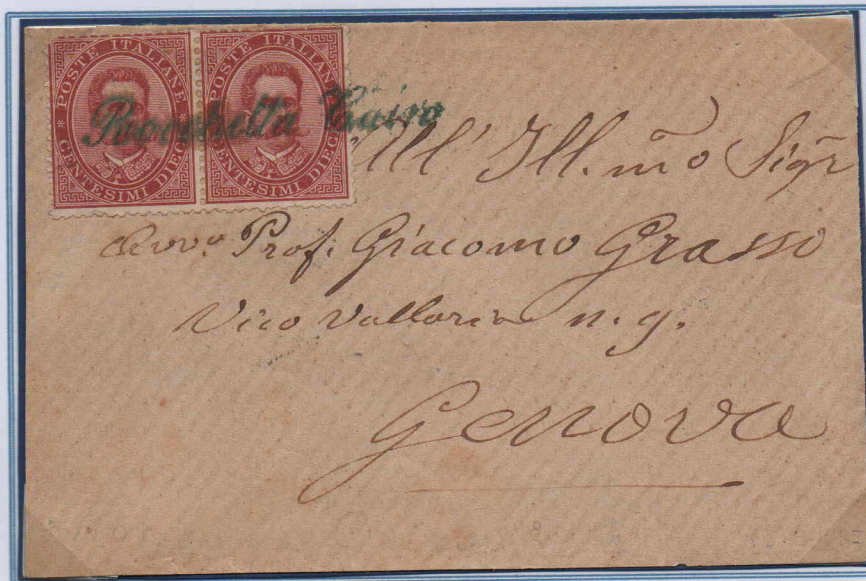 * POSTE ITALIANE * CENTESIMI DIECI
* POSTE ITALIANE * CENTESIMI DIECI
Rocchetta Cairo
All' Ill.mo Sigr
Avv.o Prof. Giacomo Grasso
Vico Valloria n. 9.
Genova